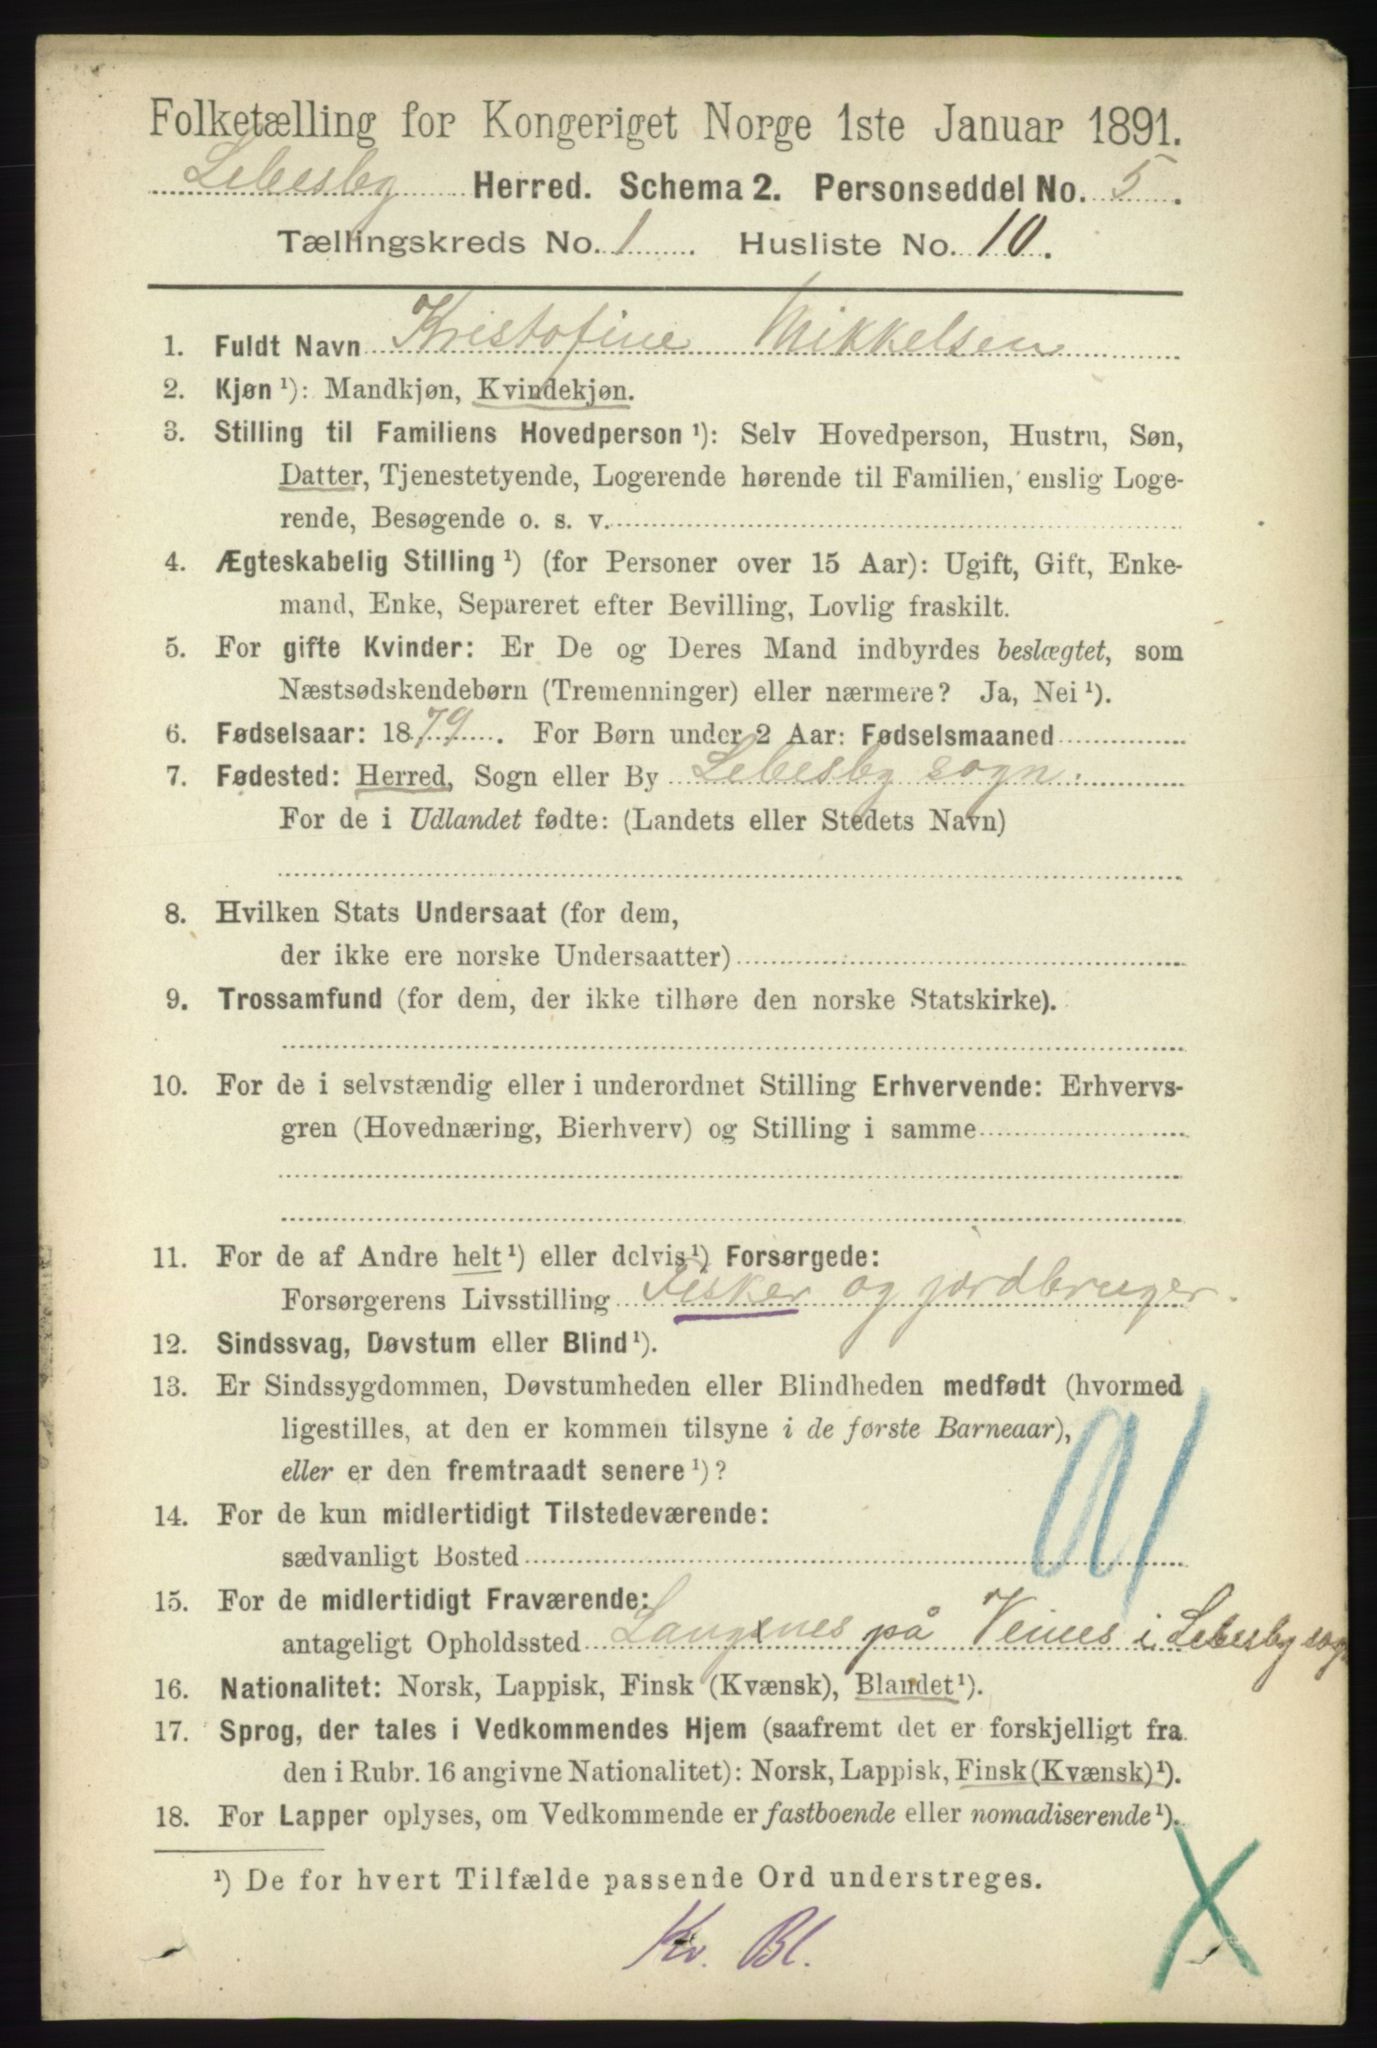 Folketælling for Kongeriget Norge 1ste Januar 1891.
Lebesby Herred. Schema 2. Personseddel No. 5.
Tællingskreds No. 1 Husliste No. 10.
1. Fuldt Navn Kristofine Mikkelsen
2. Kjøn¹): Mandkjøn, Kvindekjøn.
3. Stilling til Familiens Hovedperson¹): Selv Hovedperson, Hustru, Søn,
Datter, Tjenestetyende, Logerende hørende til Familien, enslig Loge-
rende, Besøgende o. s. v.
4. Ægteskabelig Stilling¹) (for Personer over 15 Aar): Ugift, Gift, Enke-
mand, Enke, Separeret efter Bevilling, Lovlig fraskilt.
5. For gifte Kvinder: Er De og Deres Mand indbyrdes beslægtet, som
Næstsødskendebørn (Tremenninger) eller nærmere? Ja, Nei¹).
6. Fødselsaar: 1879. For Børn under 2 Aar: Fødselsmaaned
7. Fødested: Herred, Sogn eller By Lebesby sogn.
For de i Udlandet fødte: (Landets eller Stedets Navn)
8. Hvilken Stats Undersaat (for dem,
der ikke ere norske Undersaatter)
9. Trossamfund (for dem, der ikke tilhøre den norske Statskirke).
10. For de i selvstændig eller i underordnet Stilling Erhvervende: Erhvervs-
gren (Hovednæring, Bierhverv) og Stilling i samme
11. For de af Andre helt¹) eller delvis¹) Forsørgede:
Forsørgerens Livsstilling Fisker og jordbruger.
12. Sindssvag, Døvstum eller Blind¹).
13. Er Sindssygdommen, Døvstumheden eller Blindheden medfødt (hvormed
ligestilles, at den er kommen tilsyne i de første Barneaar),
eller er den fremtraadt senere¹)?
14. For de kun midlertidigt Tilstedeværende:
sædvanligt Bosted
15. For de midlertidigt Fraværende:
antageligt Opholdssted Langnes på Veines i Lebesby sogn
16. Nationalitet: Norsk, Lappisk, Finsk (Kvænsk), Blandet¹).
17. Sprog, der tales i Vedkommendes Hjem (saafremt det er forskjelligt fra
den i Rubr. 16 angivne Nationalitet): Norsk, Lappisk, Finsk (Kvænsk)¹).
18. For Lapper oplyses, om Vedkommende er fastboende eller nomadiserende¹).
¹) De for hvert Tilfælde passende Ord understreges.
Kv. Bl.